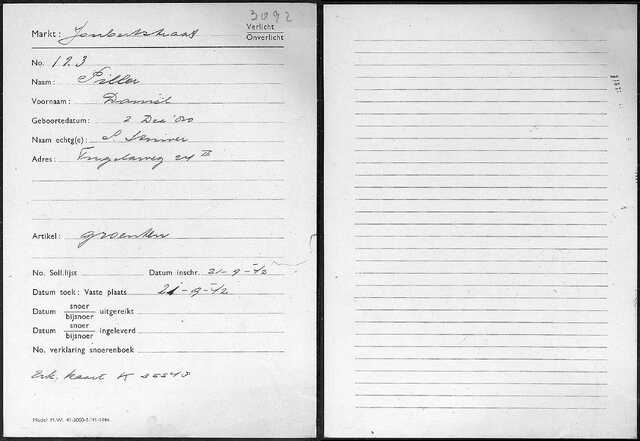 3092
Markt: Joubertstraat
Verlicht
Onverlicht
No. 123
Naam: Piller
Voornaam: Daniël
Geboortedatum: 2 Dec '80
Naam echtg(e): S.
Adres: 24 II
Artikel: groenten
No. Soll.lijst Datum inschr. 21-9-'42
Datum toek: Vaste plaats 21-9-'42
Datum snoer / bijsnoer uitgereikt
Datum snoer / bijsnoer ingeleverd
No. verklaring snoerenboek
Erk. kaart K 35543
Model M.W.